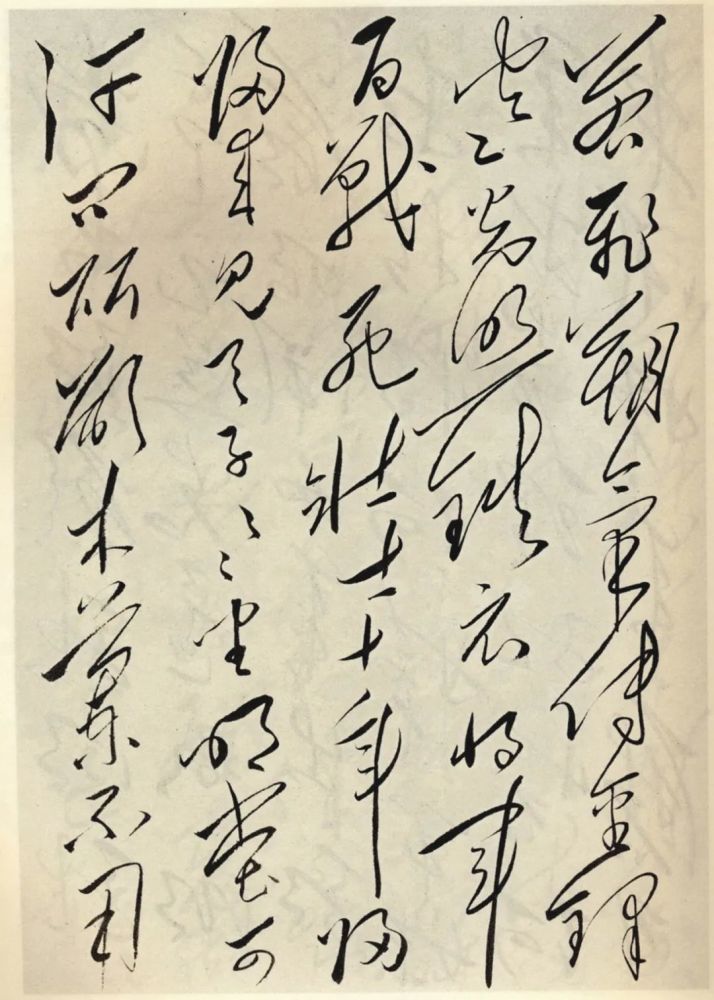 若飛朔氣傳金鐸
寒光照鐵衣將軍
百戰死壯士十年歸
歸來見天子〻〻坐明堂可
汗問所欲木蘭不用